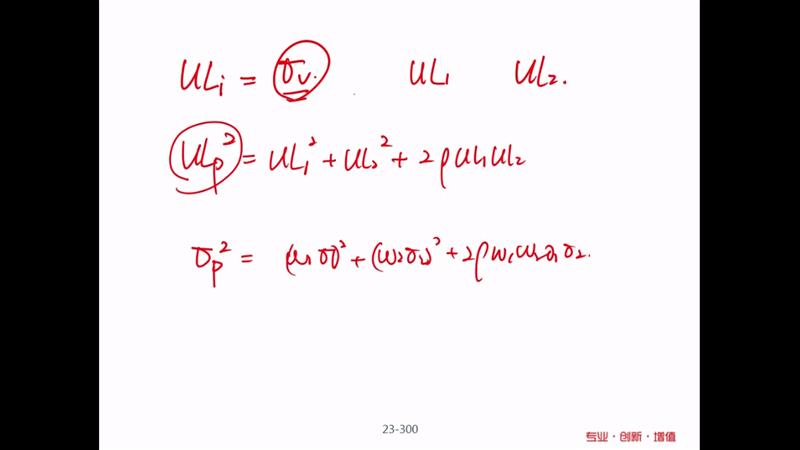 ULi = σv. UL1 UL2.
ULp² = UL1² + UL2² + 2ρUL1UL2
σp² = (ω1σ1)² + (ω2σ2)² + 2ρω1ω2σ1σ2.
23-300
专业·创新·增值